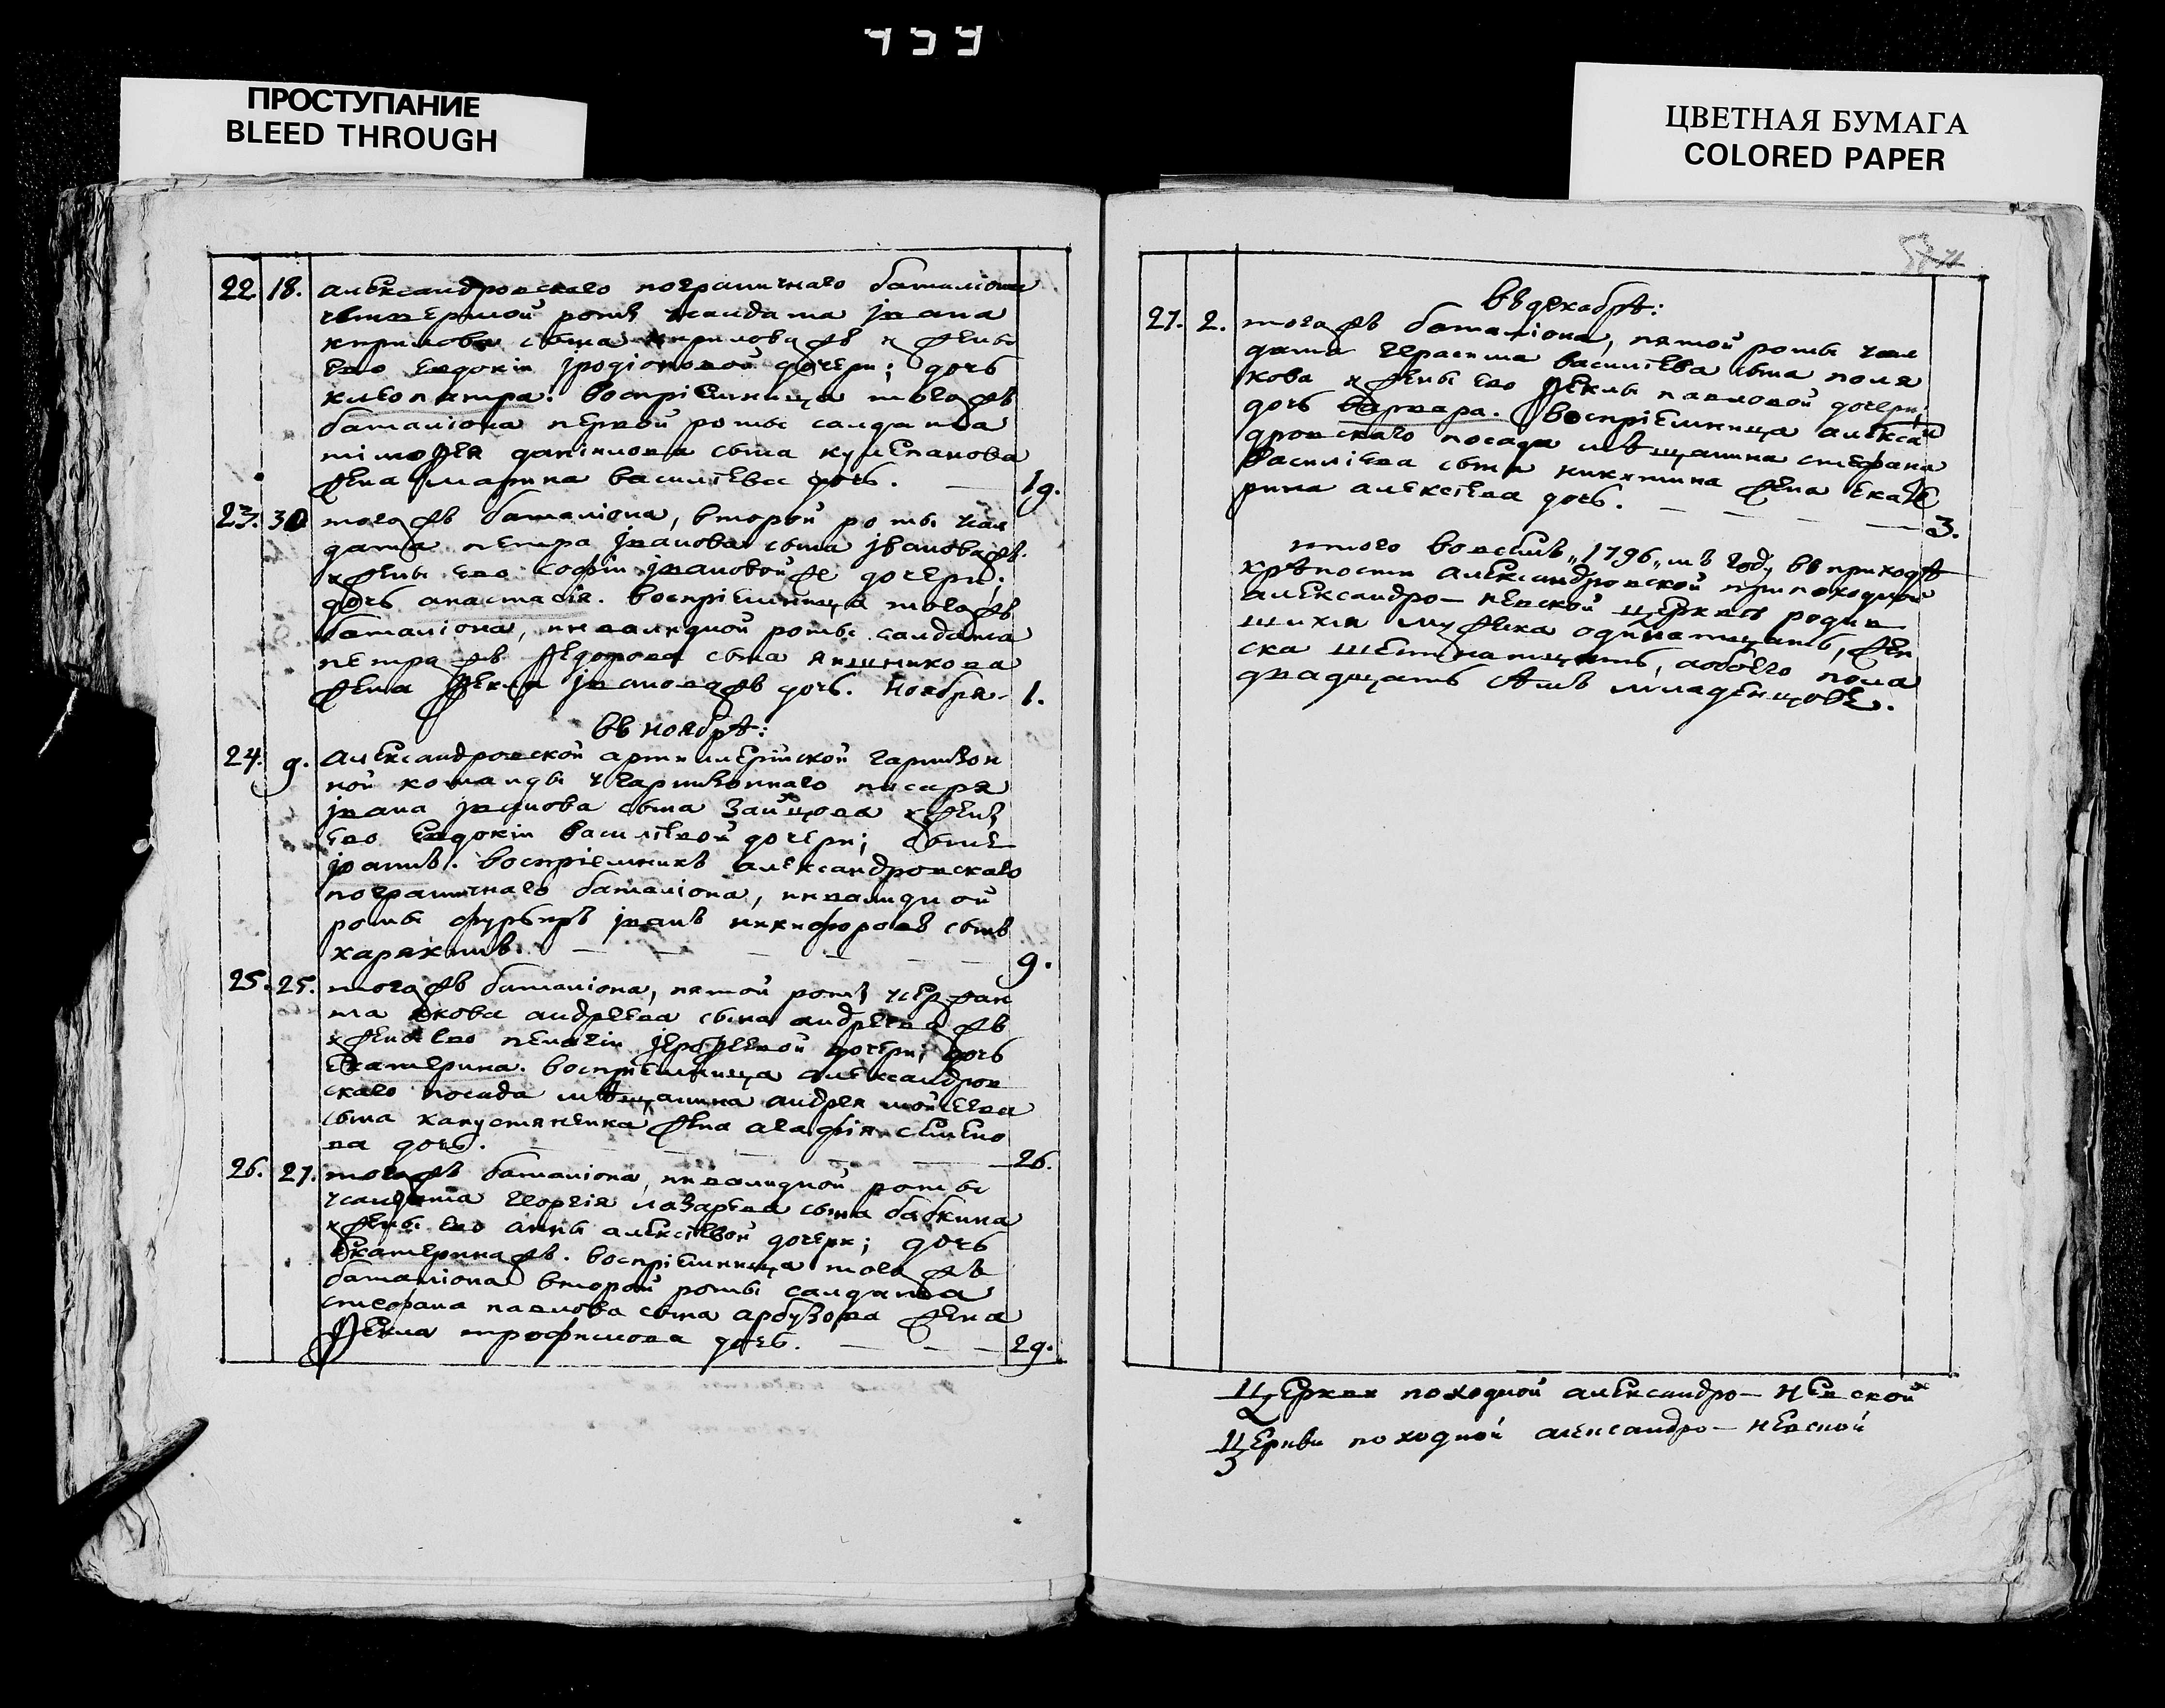 ПРОСТУПАНИЕ
BLEED THROUGH
ЦВЕТНАЯ БУМАГА
COLORED PAPER
22. 18. александровскаго пограничнаго баталиона
четвертой роты исалдата iвана
кирилова сына кириловажъ и жены
ево евдокiи iродiоновой дочери; дочь
клеопатра. воспрiемница тогожъ
баталиона первой роты салдата
тiмофея данiилова сына кулепанова
жена марина василiева дочь. 19.
23. 30. тогожъ баталиона, второй роты исал
дата петра iванова сына iвановажъ.
и жены ево софiи iвановойже дочери;
дочь анастасiя. воспрiемница тогожъ
баталиона, инвалидной роты салдата
петражъ федорова сына
жена фекла iвановажъ дочь. ноября. 1.
въ ноябрѣ:
24. 9. александровской артиллерiйской гарнизон
ной команды и гарнизоннаго писаря
iвана iванова сына зайцова и жены
ево евдокiи василiевой дочери; сынъ
iоаннъ. воспрiемникъ александровскаго
пограничнаго баталиона, инвалидной
роты фурьиръ iванъ никифоровъ сынъ
карякинъ. 9.
25. 25. тогожъ баталиона, пятой роты исержан
та якова андреева сына андрееважъ
и жены ево пелагiи iерофеевой дочери; дочь
екатерина. воспрiемница александров
скаго посада мѣщанина андрея мойсеева
сына капустяненка жена агафiя семено
ва дочь. 26.
26. 27. тогожъ баталиона, инвалидной роты
исалдата георгiя лазарева сына бабкина
и жены ево анны алексiевой дочери; дочь
екатеринажъ. воспрiемница тогожъ
баталиона второй роты салдата
стефана павлова сына арбузова жена
фекла трофимова дочь. 29.
въ декабрѣ:
27. 2. тогожъ баталиона, пятой роты исал
дата герасима василiева сына поля
кова и жены ево феклы павловой дочери;
дочь варвара. воспрiемница алексан
дровскаго посада мѣщанина стефана
василiева сына никитина жена екате
рина алексiева дочь. 3.
итого вовсемъ „1796„ мъ году въ приходѣ
крѣпости александровской при походной
александро-невской церквѣ родив
шихся мужеска одинатцать, жен
ска шестнатцать, аобоего пола
двадцать семь младенцовъ.
церкви походной александро-невской
церкви походной александро-невской